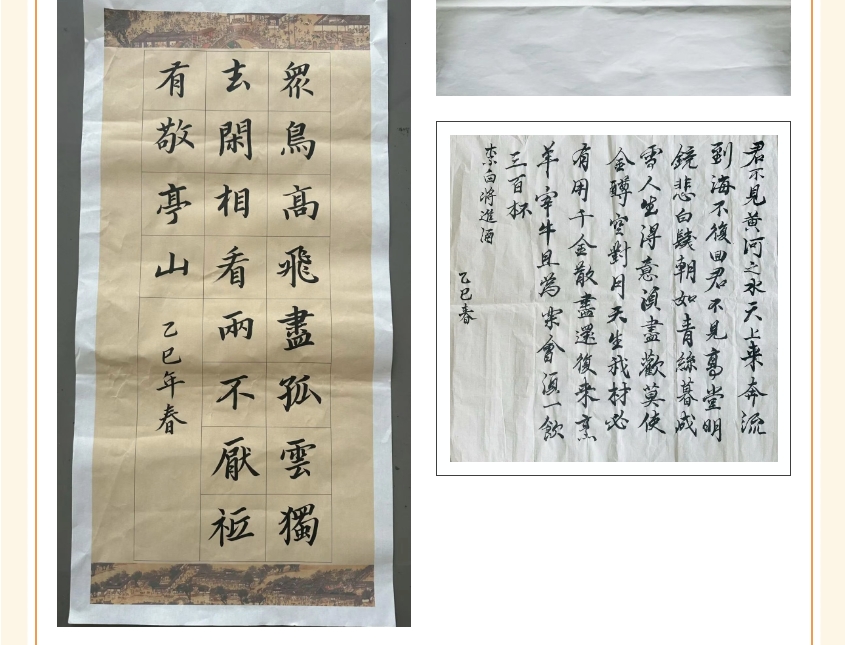 眾鳥高飛盡孤雲獨
去閑相看兩不厭祗
有敬亭山
乙巳年春
君不見黃河之水天上来奔流
到海不復回君不見高堂明
鏡悲白髮朝如青絲暮成
雪人生得意須盡歡莫使
金罇空對月天生我材必
有用千金散盡還復来烹
羊宰牛且為樂會須一飲
三百杯
李白將進酒
乙巳春